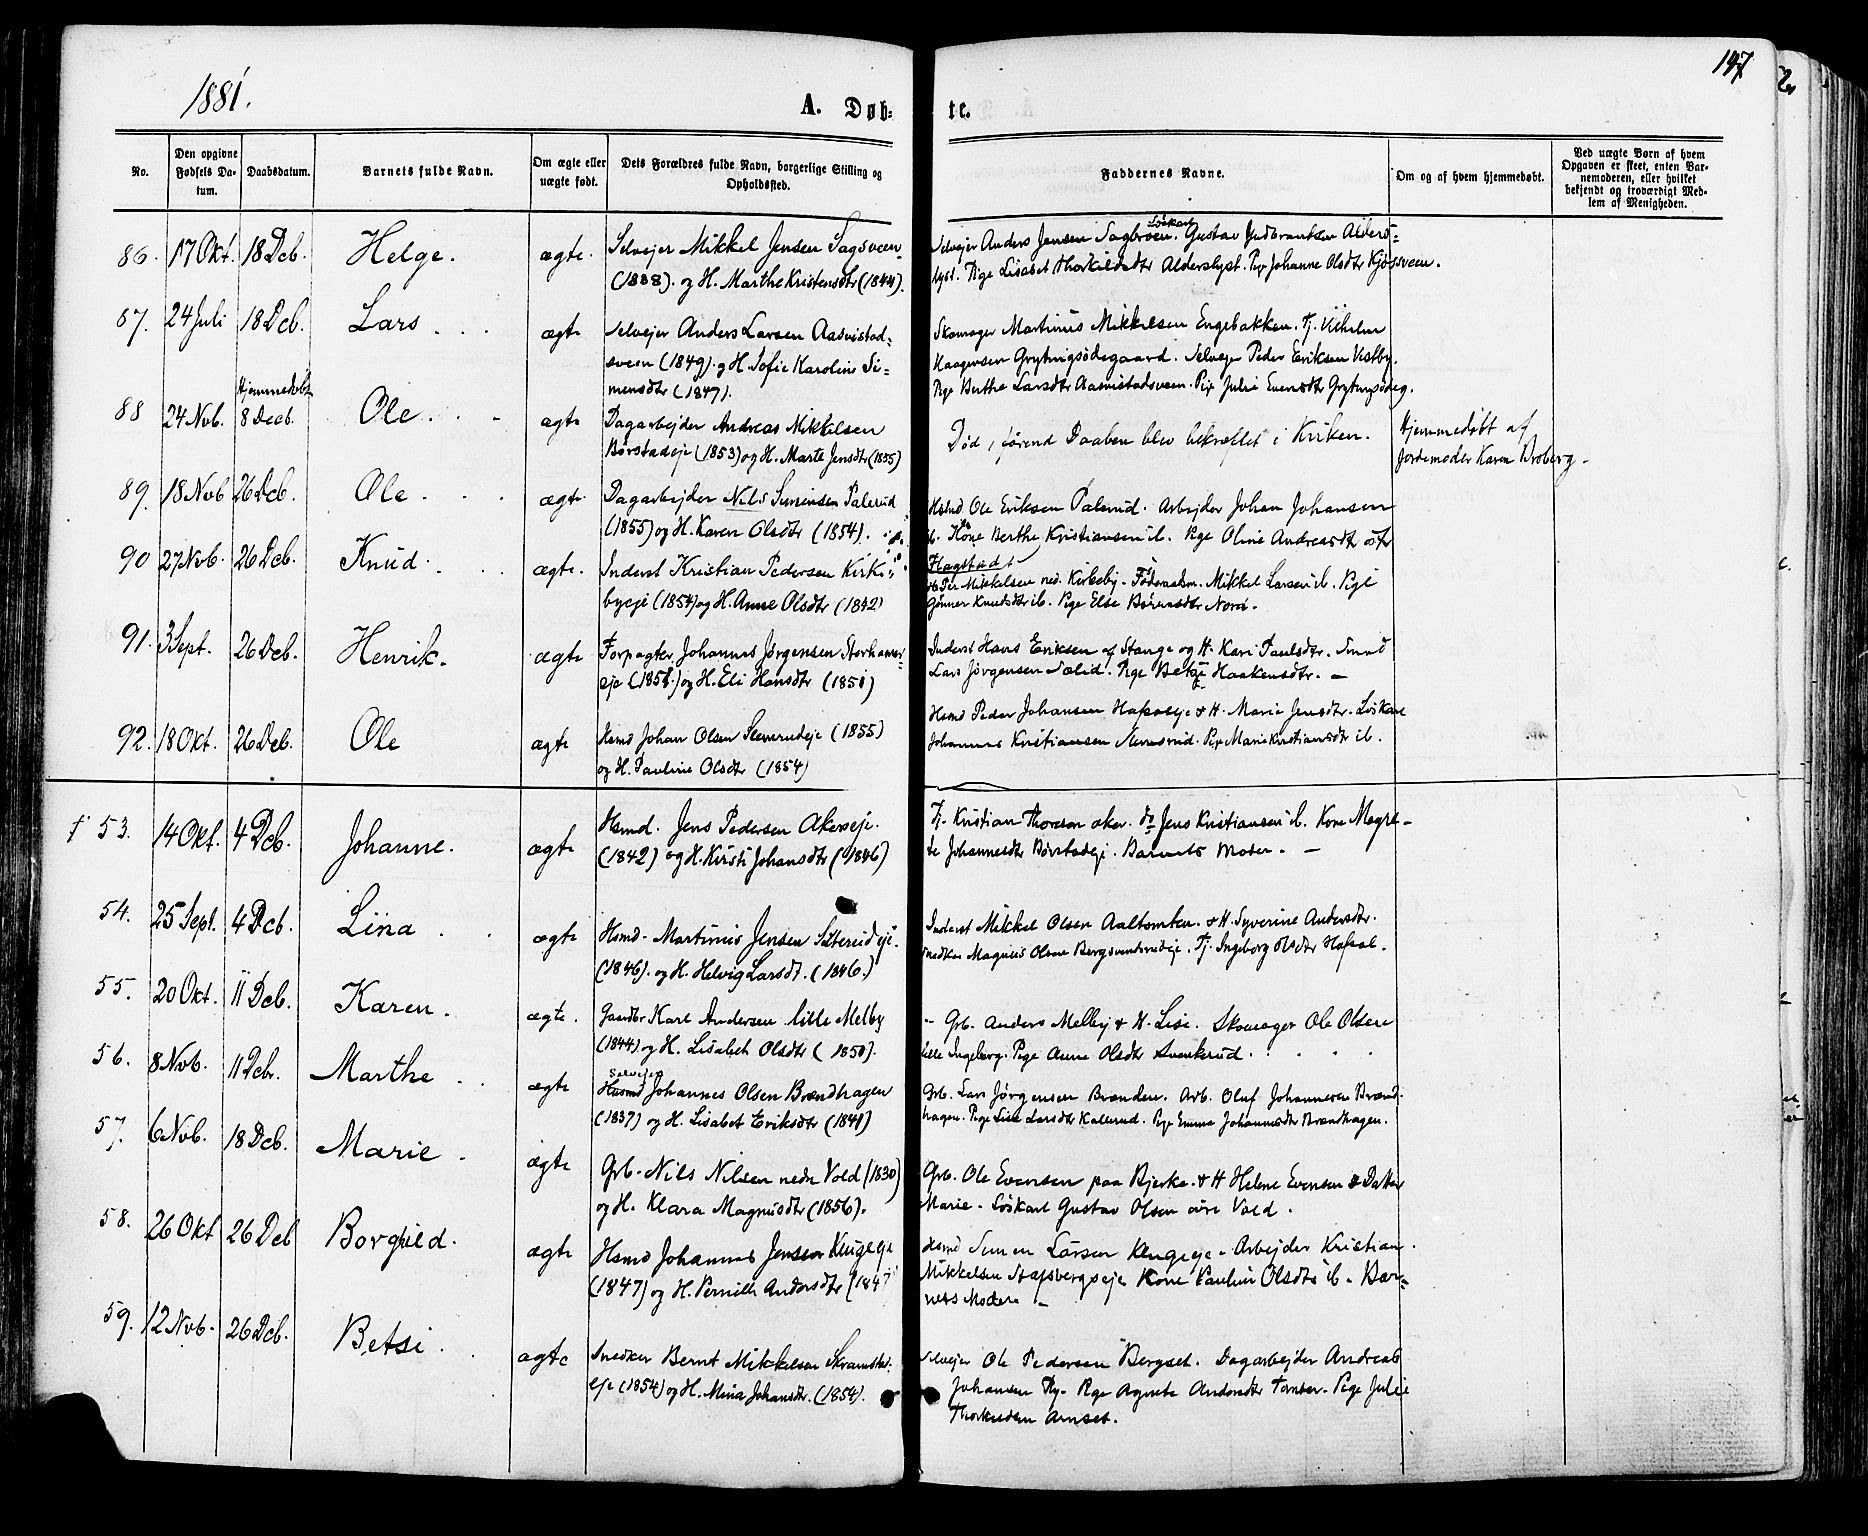 147
1881.
A. Døb-
te.
No.
Den opgivne Fødsels Da-
tum.
Daabsdatum.
Barnets fulde Navn.
Om ægte eller
uægte født.
Dets Forældres fulde Navn, borgerlige Stilling og
Opholdssted.
Faddernes Navne.
Om og af hvem hjemmedøbt.
Ved uægte Børn af hvem
Opgaven er skeet, enten Bar-
nemoderen, eller hvilket
bekjendt og troværdigt Med-
lem af Menigheden.
86. 17 Okt. 18 Dcb. Helge. ægte. Selveier Mikkel Jensen Sagsveen
(1838). og H. Marthe Kristensdtr (1844).
Selveier Anders Jensen Sagbroen. Løskarl Gustav Gudbrandsen Alders-
lyst. Pige Lisabet Thorkildsdtr Alderslyst. Pige Johanne Olsdtr Kjosveen.
87. 24 Juli 18 Dcb. Lars. ægte Selvejer Anders Larsen Aasmstad-
sveen (1849) og H. Sofie Karoline Si-
mensdtr (1847).
Skomager Martinus Mikkelsen Engebakken. Tj. Vilhelm
Haagensen Grytingsødegaard. Selvejer Peder Eriksen Vestby.
Pige Berthe Larsdtr Aasmstadsveen. Pige Julie Evensdtr
88 24 Nov. Hjemmedøbt
8 Decb. Ole. ægte Dagarbejder Andreas Mikkelsen
Børstadeje (1853) og H. Marte Jensdtr (1855)
Død, førend Daaben blev bekræftet i Kirken.
Hjemmedøbt af
Jordemoder Karen Broberg.
89. 18 Nov 26 Dcb. Ole. ægte. Dagarbejder Nils Simensen Palerud
(1855) og H. Karen Olsdtr (1854).
Hsmd Ole Eriksen Palerud. Arbejder Johan Johansen
ib. Kone Berthe Kristiansen ib. Pige Oline Andreasdtr
Flagstad.
90 27 Nov. 26 Dcb. Knud. ægte. Inderst Kristian Pedersen Kirke-
byeje (1854) og H. Anne Olsdtr (1842)
Per Mikkelsen ned. Kirkeby. Føderaadsm. Mikkel Larsen ib. Pige
Gunner Knudsdtr ib. Pige Else
91. 3 Sept. 26 Dcb. Henrik. ægte Forpagter Johannes Jørgensen Storhamar-
eje (1851.) og H. Eli Hansdtr (1851)
Inderst Hans Eriksen af Stange og H. Kari Paulsdtr. Smed
Lars Jørgensen Sælid. Pige Betzi Haakensdtr. —
92. 18 Okt. 26 Dcb. Ole ægte Hsmd Johan Olsen Sleverudeje (1855)
og H. Pauline Olsdtr (1854)
Hsmd Peder Johansen Hafsaleje & H. Marie Jensdtr. Løskarl
Johannes Kristiansen Pige Marie Kristiansdtr ib.
53. 14 Okt. 4 Dcb. Johanne. ægte Hsmd. Jens Pedersen Akerseje.
(1842) og H. Kirsti Johansdtr (1846)
Tj. Kristian Thoresen aker. do Jens Kristiansen ib. Kone Magre-
te Johannesdtr Børstadeje. Barnets Moder. —
54. 25 Sept. 4 Dcb. Lina. ægte Hsmd. Martinus Jensen
(1846). og H. Helvig Larsdt. (1846.)
Inderst Mikkel Olsen Aaltomten. & H. Syverine Andersdtr.
Snedker Magnus Olsen Tj. Ingeborg Olsdtr Hafsal.
55. 20 Okt. 11 Dcb. Karen. ægte. Gaardbr Karl Andersen lille Melby
(1844) og H. Lisabeth Olsdtr (1850).
Grb. Anders Melby & H. Lise. Skomager Ole Olsen
lille Ingeberg. Pige Anne Olsdtr Svenkerud.
56. 8 Nov. 11 Dcbr. Marthe. ægte Selvejer
Husmd Johannes Olsen Brændhagen
(1837) og H. Lisabet Eriksdtr (1841)
Grb. Lars Jørgensen Brænden. Arb. Oluf Johannesen Brænd-
hagen. Pige Lise Larsdtr Kalerud. Pige Emma Johannesdtr Brændhagen.
57. 6 Nov. 18 Dcb. Marie. ægte Grb. Nils Nilsen nedr Vold (1830)
og H. Klara Magnusdtr (1856).
Grb. Ole Evensen paa Bjerke. & H Helene Evensen & Datter
Marie. Løskarl Gustav Olsen øvre Vold.
58. 26 Okt 26 Dcb Borghild. ægte Hsmd Johannes Jensen Klugeeje
(1847) og H. Pernille Andersdtr (1847
Hsmd Simen Larsen Klugeeje. Arbejder Kristian
Mikkelsen Stafsbergseje Kone Pauline Olsdtr ib. Bar-
nets Moder. —
59. 12 Nov. 26 Dcb. Betsi. ægte Snedker Bernt Mikkelsen Skramstad-
eje (1854) og H. Mina Johansdtr. (1854).
Selvejer Ole Pedersen Bergset. Dagarbejder Andreas
Johansen Ry. Pige Agnete Andersdtr Tomter. Pige Julie
Thorkildsen Arnset.